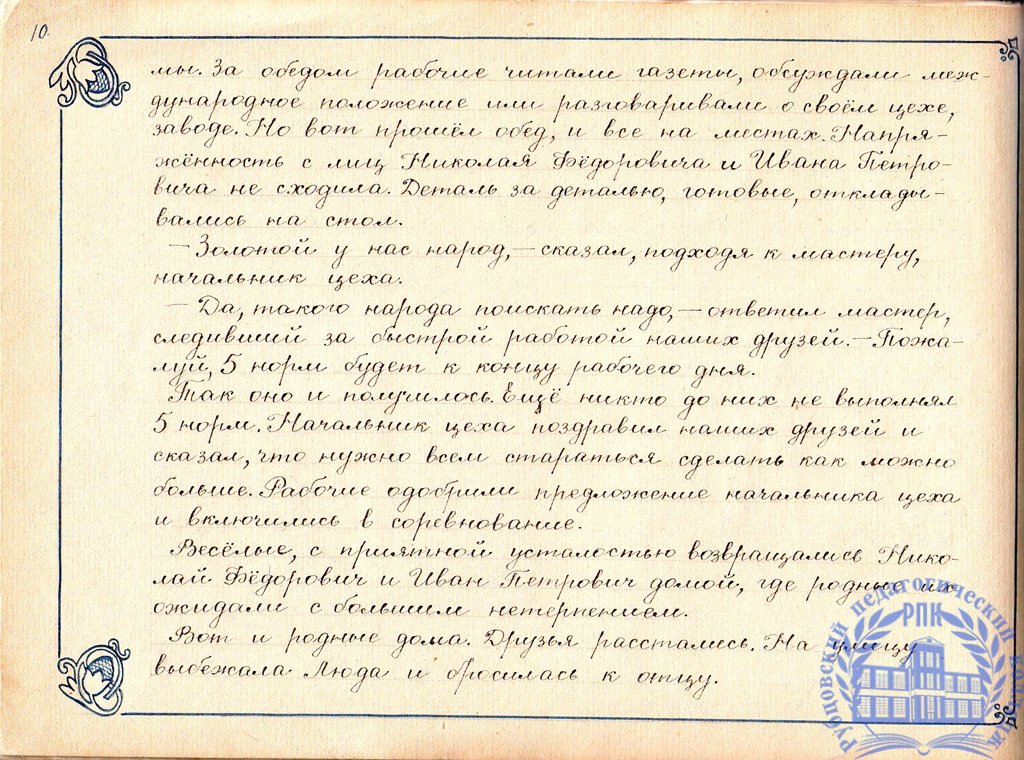 10.
мы. За обедом рабочие читали газеты, обсуждали меж-
дународное положение или разговаривали о своём цехе,
заводе. Но вот прошёл обед, и все на местах. Напря-
жённость с лиц Николая Фёдоровича и Ивана Петро-
вича не сходила. Деталь за деталью, готовые, отклады-
вались на стол.
— Золотой у нас народ, — сказал, подходя к мастеру,
начальник цеха.
— Да, такого народа поискать надо, — ответил мастер,
следивший за быстрой работой наших друзей. — Пожа-
луй, 5 норм будет к концу рабочего дня.
Так оно и получилось. Ещё никто до них не выполнял
5 норм. Начальник цеха поздравил наших друзей и
сказал, что нужно всем стараться сделать как можно
больше. Рабочие одобрили предложение начальника цеха
и включились в соревнование.
Весёлые, с приятной усталостью возвращались Нико-
лай Фёдорович и Иван Петрович домой, где родные их
ожидали с большим нетерпением.
Вот и родные дома. Друзья расстались. На улицу
выбежала Люда и бросилась к отцу.
Рубцовский педагогический колледж
РПК